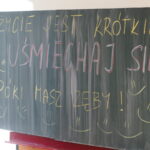 ŻYCIE JEST KRÓTKIE
UŚMIECHAJ SIĘ
PÓKI MASZ ZĘBY!